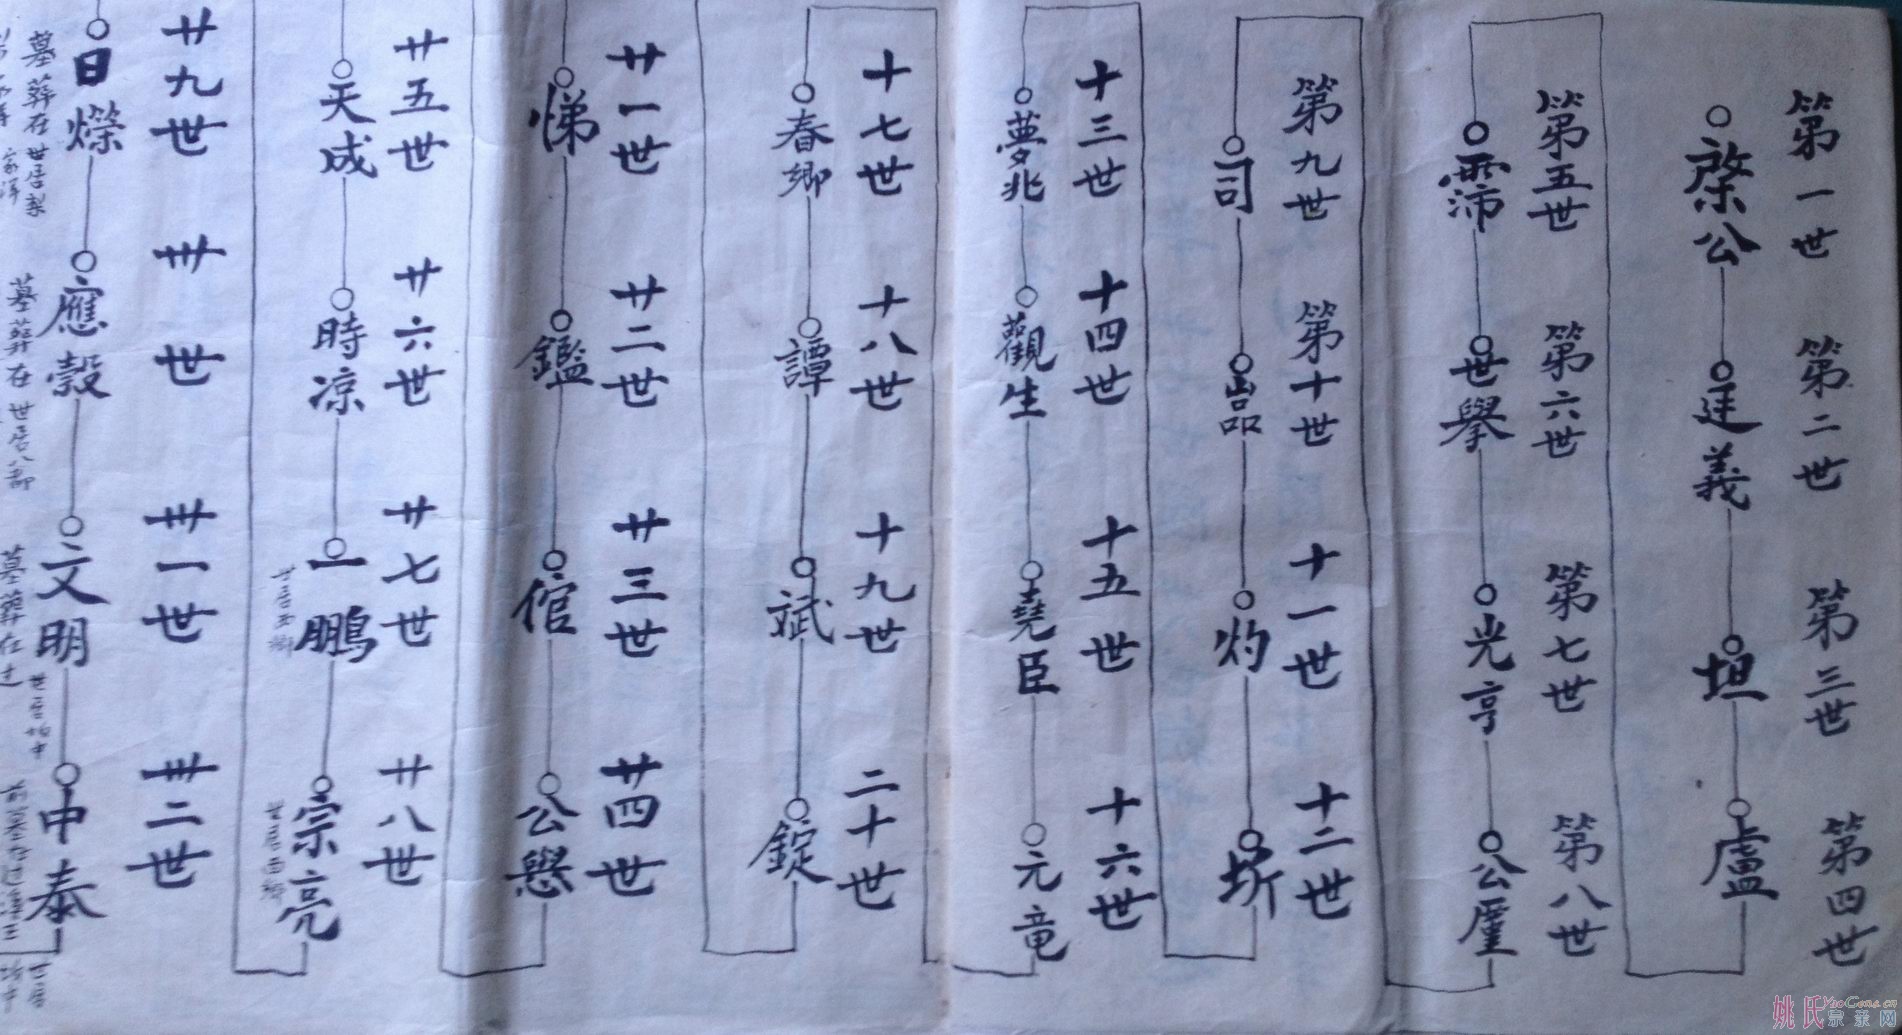 第一世
棨公
第二世
廷義
第三世
坦
第四世
盧
第五世
霈
第六世
世舉
第七世
光亨
第八世
公厪
第九世
司
第十世
嵒
十一世
灼
十二世
圻
十三世
夢兆
十四世
觀生
十五世
堯臣
十六世
元竜
十七世
春鄉
十八世
譚
十九世
斌
二十世
錠
廿一世
悌
廿二世
鑑
廿三世
倌
廿四世
公懋
廿五世
天成
廿六世
時凉
廿七世
一鵬
世居西鄉
廿八世
宗亮
世居西鄉
廿九世
日爍
墓葬在
世居梨
卅世
應穀
墓葬在
世居八部
卅一世
文明
墓葬在
世居均中
卅二世
中泰
世居
均中
姚氏宗亲网
YaoGens.cn